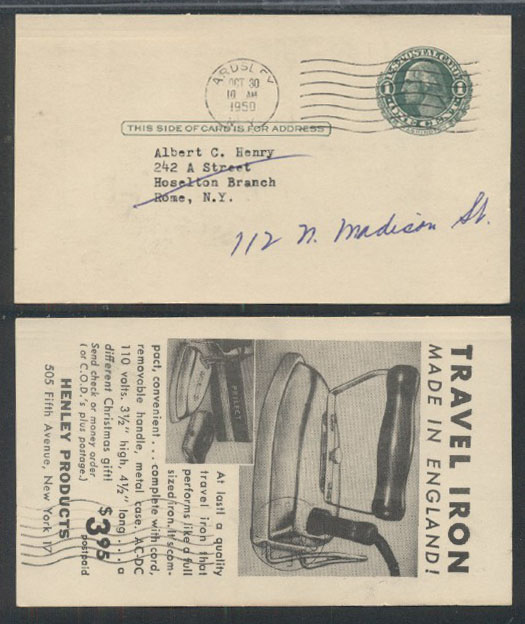 ARDSLEY
OCT 30
10 AM
1950
N.Y.
U.S. POSTAL CARD
1 1
ONE CENT
THIS SIDE OF CARD IS FOR ADDRESS
Albert C. Henry
242 A Street
Hoselton Branch
Rome, N.Y.
112 N. Madison St.
TRAVEL IRON
MADE IN ENGLAND!
At last! a quality
travel iron that
performs like a full
sized iron. It's com-
pact, convenient... complete with cord,
removable handle, metal case. AC-DC
110 volts. 3½" high, 4½" long . . . a
different Christmas gift!
$3.95
postpaid
Send check or money order
(or C.O.D.'s plus postage.)
HENLEY PRODUCTS
505 Fifth Avenue, New York 17